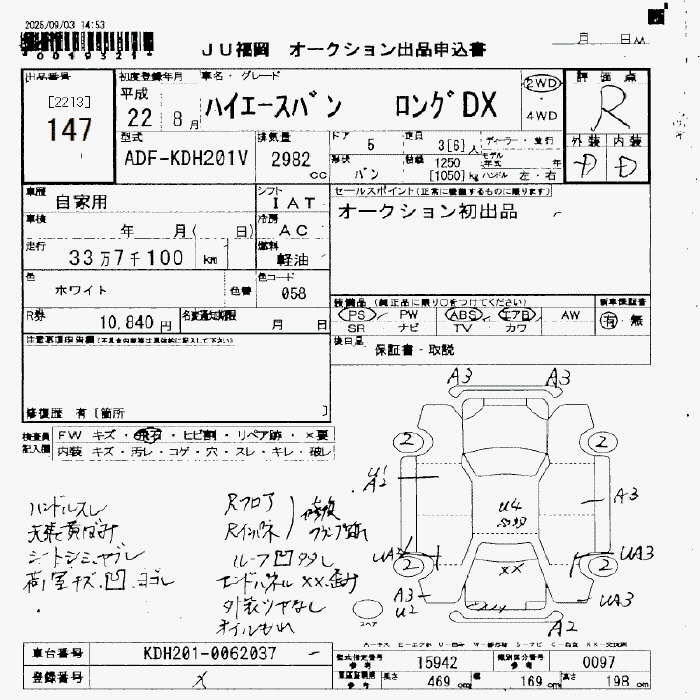 2025/09/03 14:53
00193214
JU福岡 オークション出品申込書
月 日
出品番号
[2213]
147
初度登録年月
平成
22 8月
車名・グレード
ハイエースバン ロングDX
2WD
・
4WD
評価点
R
外装 内装
D D
型式
ADF-KDH201V
排気量
2982
cc
ドア
5
定員
3[6]人
形状
バン
積載
1250
[1050]kg
ディーラー・並行
モデル年式 年
ハンドル 左・右
車歴
自家用
シフト
IAT
車検
年 月( 日)
冷房
AC
走行
33万7千100 km
燃料
軽油
色
ホワイト
色替
色コード
058
R券
10,840円
名変通知期限
月 日
セールスポイント(正常に機能するものに限ります)
オークション初出品
装備品(純正品に限り○をつけてください)
PS ・ PW ・ ABS ・ エアB ・ AW
SR ナビ TV カワ
新車保証書
有・無
後日品
保証書・取説
注意事項申告欄(不具合箇所は具体的に記入して下さい)
修復歴 有[箇所 ]
検査員記入欄
FW キズ・飛石・ヒビ割・リペア跡・×要
内装 キズ・汚レ・コゲ・穴・スレ・キレ・破レ
ハンドルスレ
天張黄ばみ
シートシミ、ヤブレ
荷室キズ、凹、ヨゴレ
Rフロア
Rインパネ
修復
ルーフ凹タタし
エンドパネル××歪み
外装ツヤなし
オイルもれ
A3
A3
2
2
U1
A2
U4
A3
UA3
UA3
2
2
××
A3
U2
UA3
A2
スペア
車台番号
KDH201-0062037
登録番号
型式指定番号
参考
15942
類別区分番号
参考
0097
長さ
469cm
幅
169cm
高さ
198cm